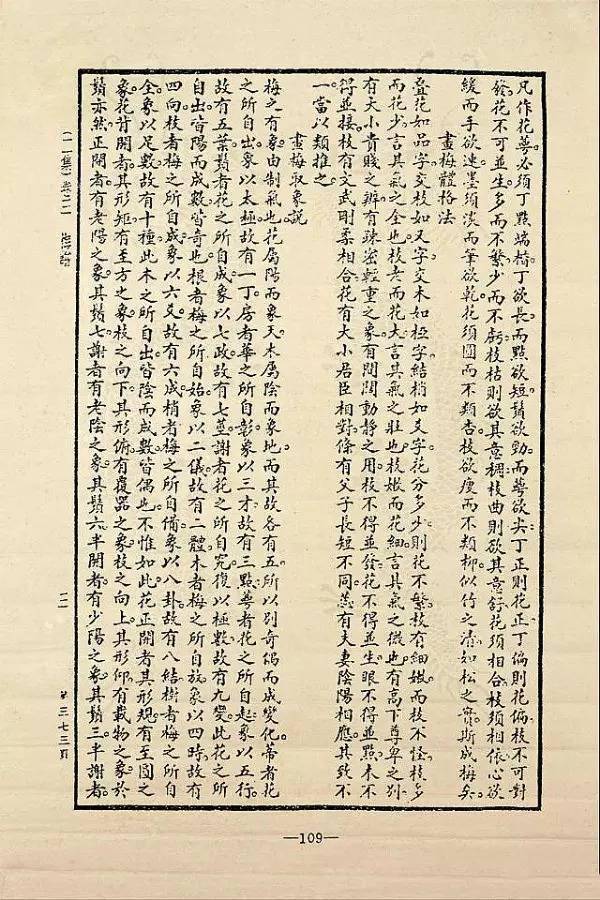 凡作花萼必須丁點端楷丁欲長而點欲短鬚欲勁而萼欲尖丁正則花正丁偏則花偏枝不可對
發花不可並生多而不繁少而不虧枝枯則欲其意稠枝曲則欲其意舒花須相合枝須相依心欲
緩而手欲速墨須淡而筆欲乾花須圓而不類杏枝欲瘦而不類柳似竹之清如松之實斯成梅矣
畫梅體格法
疊花如品字交枝如叉字交木如椏字結梢如爻字花分多少則花不繁枝有細嫩而枝不怪枝多
而花少言其氣之全也枝老而花大言其氣之壯也枝嫩而花細言其氣之微也有高下尊卑之別
有大小貴賤之辨有疎密輕重之象有間闊動靜之用枝不得並發花不得並生眼不得並點木不
得並接枝有文武剛柔相合花有大小君臣相對條有父子長短不同蕊有夫妻陰陽相應其致不
一當以類推之
畫梅取象說
梅之有象由制氣也花屬陽而象天木屬陰而象地而其故各有五所以別奇偶而成變化蒂者花
之所自出象以太極故有一丁房者華之所自彰象以三才故有三點萼者花之所自起象以五行
故有五葉鬚者花之所自成象以七政故有七莖謝者花之所自究復以極數故有九變此花之所
自出皆陽而成數皆奇也根者梅之所自始象以二儀故有二體木者梅之所自放象以四時故有
四向枝者梅之所自成象以六爻故有六成梢者梅之所自備象以八卦故有八結樹者梅之所自
全象以足數故有十種此木之所自出皆陰而成數皆偶也不惟如此花正開者其形規有至圓之
象花背開者其形矩有至方之象枝之向下其形俯有覆器之象枝之向上其形仰有載物之象於
鬚亦然正開者有老陽之象其鬚七謝者有老陰之象其鬚六半開者有少陽之象其鬚三半謝者
(一集)卷之二
二
第三七三頁
—109—